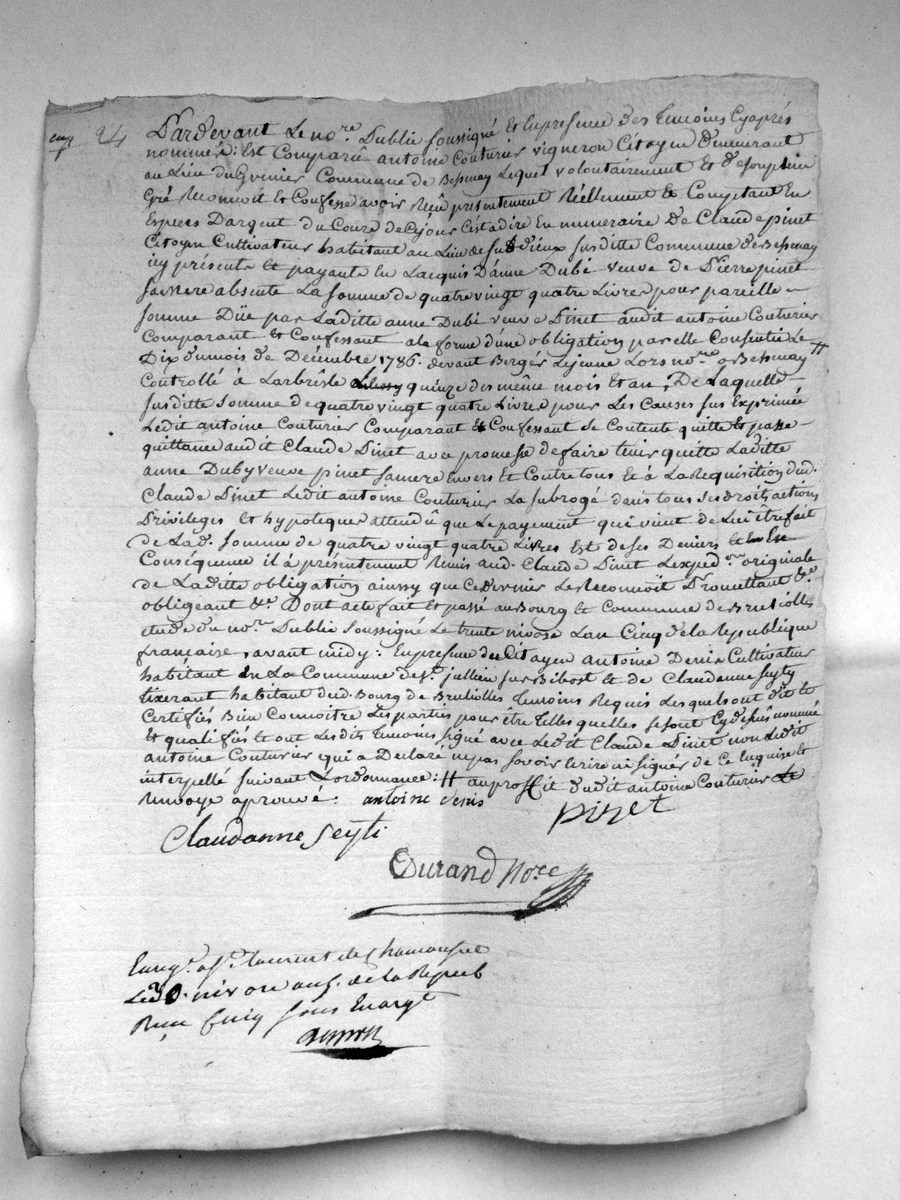 enz 24
Pardevant Le no.re Public soussigné Et En presence des temoins Cyaprés
nommés : Est Comparû antoine Couturier vigneron Citoyen demeurant
au Lieu du Commune de Bessenay Lequel volontairement Et de son plein
Gré Reconnoit Et Confesse avoir Reçû presentement Réellement Et Comptant En
Especes D'argent du Cours de Ce jour C'est adire En numeraire de Claude pinet
Citoyen Cultivateur habitant au Lieu de susditte Commune de Bessenay
icy présents Et payants En L'acquis D'anne Dubi veuve de Pierre pinet
sa mere absente La somme de quatre vingt quatre Livres pour pareille
somme Düe par Laditte anne Dubi veuve Pinet audit antoine Couturier
Comparant Et Confessant a la forme d'une obligation par elle Consentie Le #
Dix du mois de Décembre 1786. devant Berger Lejeune Lors no.re a Bessenay
Controllé à Larbresle quinze des même mois Et an, De Laquelle
susditte somme de quatre vingt quatre Livres pour Les Causes sus Exprimée
Ledit antoine Couturier Comparant Et Confessant se Contente quitte Et passe
quittance audit Claude Pinet avec promesse de faire tenir quitte Laditte
anne Duby veuve pinet sa mere Envers Et Contre tous Et à La Requisition dud.
Claude Pinet Ledit antoine Couturier La subrogé dans tous ses droits, actions
Privileges Et hypoteques attendû que Le payement qui vient de Lui être fait
de Lad. somme de quatre vingt quatre Livres Est de ses Deniers En
Conséquence il à présentement Remis aud. Claude Pinet L'exped.on originale
de Laditte obligation ainssy que Ce dernier Le Reconnoit Promettant &.
obligeant &. Dont acte fait Et passé au Bourg Et Commune de Brusiolles
Etude du no.re Public soussigné Le trente nivose L'an Cinq de La Republique
française, avant midy : En presence du Citoyen antoine Denis Cultivateur
habitant En La Commune de St. jullien sur Bibost Et de Claudanne Seyty
tixerant habitant aud. Bourg de Brusiolles temoins Requis Lesquels ont dit Et
Certifiés Bien Connoitre Les parties pour être telles quelles se sont Cy dessus nommé
Et qualifiés Et ont Les dits temoins signé avec Ledit Claude Pinet non Ledit
antoine Couturier qui a Declaré ne pas savoir Ecrire ni signer de Ce Enquis Et
interpellé suivant L'ordonnance : # au proffit dudit antoine Couturier
Renvoye aprouvé. antoine denis
pinet
Claudanne Seyti
Durand No.re
Enreg. a St. Laurent de Chamousset
Le 30. nivose an 5. de la Repub
Reçu Cinq sous